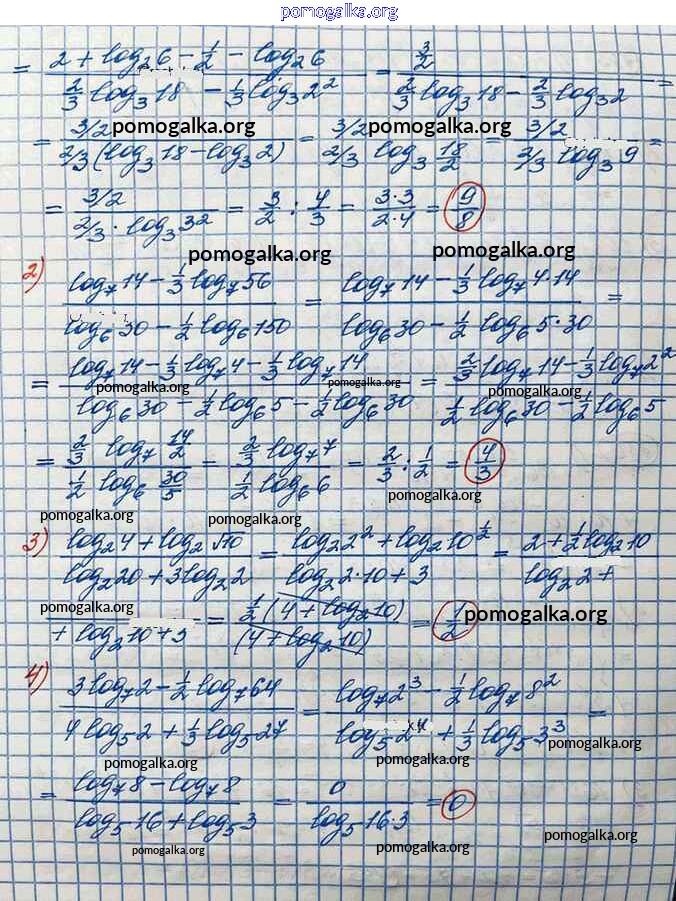 pomogalka.org
= (2 + log₂6 - 1/2 - log₂6) / (2/3 log₃18 - 1/3 log₃2²) = (3/2) / (2/3 log₃18 - 2/3 log₃2) =
= (3/2) / (2/3(log₃18 - log₃2)) = (3/2) / (2/3 log₃ 18/2) = (3/2) / (2/3 log₃9) =
pomogalka.org pomogalka.org
= (3/2) / (2/3 · log₃3²) = 3/2 : 4/3 = (3·3)/(2·4) = 9/8
pomogalka.org pomogalka.org
2) (log₇14 - 1/3 log₇56) / (log₆30 - 1/2 log₆150) = (log₇14 - 1/3 log₇4·14) / (log₆30 - 1/2 log₆5·30) =
= (log₇14 - 1/3 log₇4 - 1/3 log₇14) / (log₆30 - 1/2 log₆5 - 1/2 log₆30) = (2/3 log₇14 - 1/3 log₇2²) / (1/2 log₆30 - 1/2 log₆5)
pomogalka.org pomogalka.org pomogalka.org
= (2/3 log₇ 14/2) / (1/2 log₆ 30/5) = (2/3 log₇7) / (1/2 log₆6) = 2/3 : 1/2 = 4/3
pomogalka.org
pomogalka.org pomogalka.org
3) (log₂4 + log₂√10) / (log₂20 + 3log₂2) = (log₂2² + log₂10^(1/2)) / (log₂2·10 + 3) = (2 + 1/2 log₂10) / (log₂2 +
pomogalka.org
+ log₂10 + 3) = (1/2 (4 + log₂10)) / (4 + log₂10) = 1/2
pomogalka.org
4) (3log₇2 - 1/2 log₇64) / (4log₅2 + 1/3 log₅27) = (log₇2³ - 1/2 log₇8²) / (log₅2⁴ + 1/3 log₅3³) =
pomogalka.org
pomogalka.org pomogalka.org
= (log₇8 - log₇8) / (log₅16 + log₅3) = 0 / (log₅16·3) = 0
pomogalka.org
pomogalka.org pomogalka.org